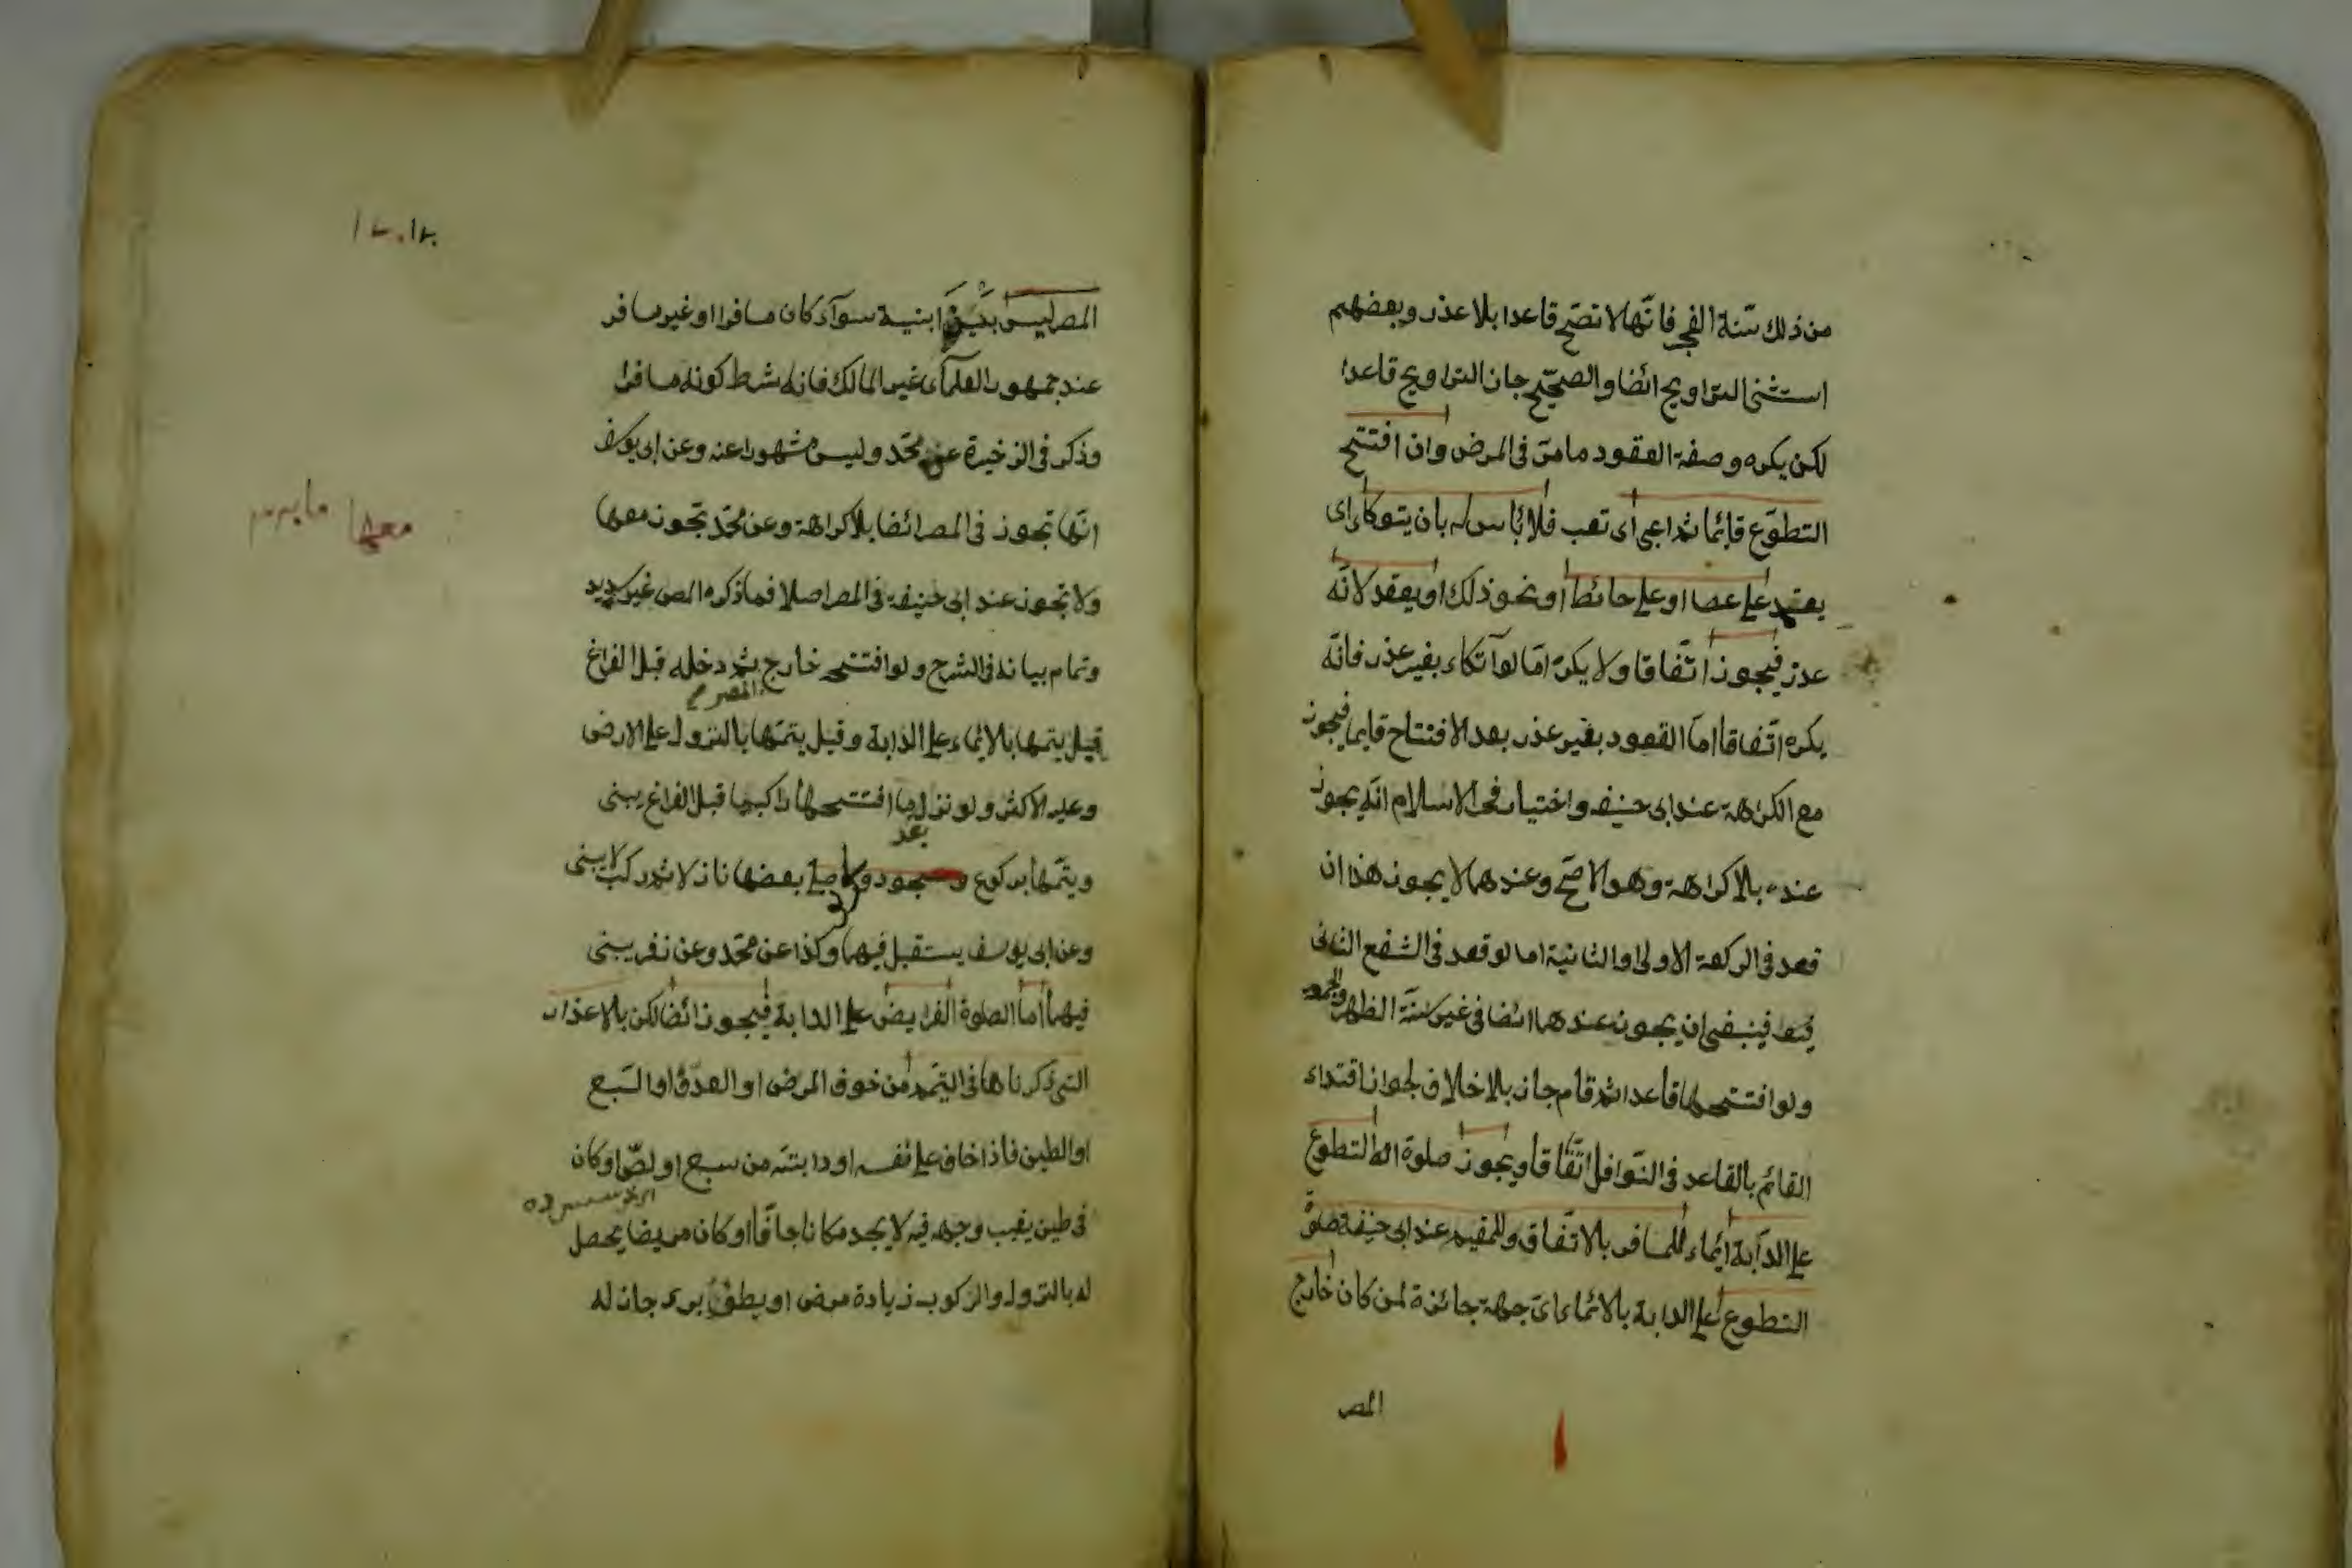 من ذلك سنة الفجر فانها لا تصح قاعدا بلا عذر وبعضهم
استثنى التراويح ائضا والصحيح جاز التراويح قاعدا
لكن يكره وصفة القعود ما مر فى المرض وان افتتح
التطوع قائما ثم اعيى اى تعب فلا باس له بان يتوكاء اى
يعتمد على عصا او على حائط او نحو ذلك او يقعد لانه
عذر فيجوز اتفاقا ولا يكره اما لو اتكاء بغير عذر فانه
يكره اتفاقا اما القعود بغير عذر بعد الافتتاح قايما فيجوز
مع الكراهة عند ابى حنيفه واختيار فخر الاسلام انه يجوز
عنده بلا كراهة وهو الاصح وعندهما لا يجوز هذا ان
قعد فى الركعة الاولى او الثانية اما لو قعد فى الشفع الثانى
فينبغى ان يجوز عندهما ائضا فى غير سنة الظهر والجمعه
ولو افتتحها قاعدا ثم قام جاز بلا خلاف لجواز اقتداء
القائم بالقاعد فى النوافل اتفاقا ويجوز صلوة التطوع
على الدابة ايماء للمسافر بالاتفاق وللمقيم عند ابى حنيفة صلوة
التطوع على الدابة بالائماء اى جهة جائزة لمن كان خارج
المصر
المصر ليس بين ابنية سوآء كان مسافرا او غير مسافر
عند جمهور العلمآء غير المالك فانه شرط كونه مسافرا
وذكر فى الزخيرة عن محمد وليس مشهورا عنه وعن ابى يوسف
انها تجوز فى المصر ائضا بلا كراهة وعن محمد تجوز معها
ولا تجوز عند ابى حنيفه فى المصر اصلا فما ذكره المص غير سديد
وتمام بيانه فى الشرح ولو افتتحه خارج ثم دخله قبل الفراغ
المصر
قيل يتمها بالائماء على الدابة وقيل يتمها بالنزول على الارض
وعليه الاكثر ولو نزل ما افتتحها راكبها قبل الفراغ يبنى
بعد
ويتمها بركوع وسجود ولو صلى بعضها نازلا ثم ركب لا يبنى
وعن ابى يوسف يستقبل فيهما وكذا عن محمد وعن زفر يبنى
فيهما اما الصلوة الفرايض على الدابة فيجوز ائضا لكن بالاعذار
التى ذكرناها فى التيمم من خوف المرض او العدو او السبع
او الطين فاذا خاف على نفسه او دابته من سبع او لص او كان
فى طين يغيب وجهه فيه لا يجد مكانا جافا او كان مريضا يحصل
له بالنزول والركوب زيادة مرض او بطؤ برء جاز له
معها